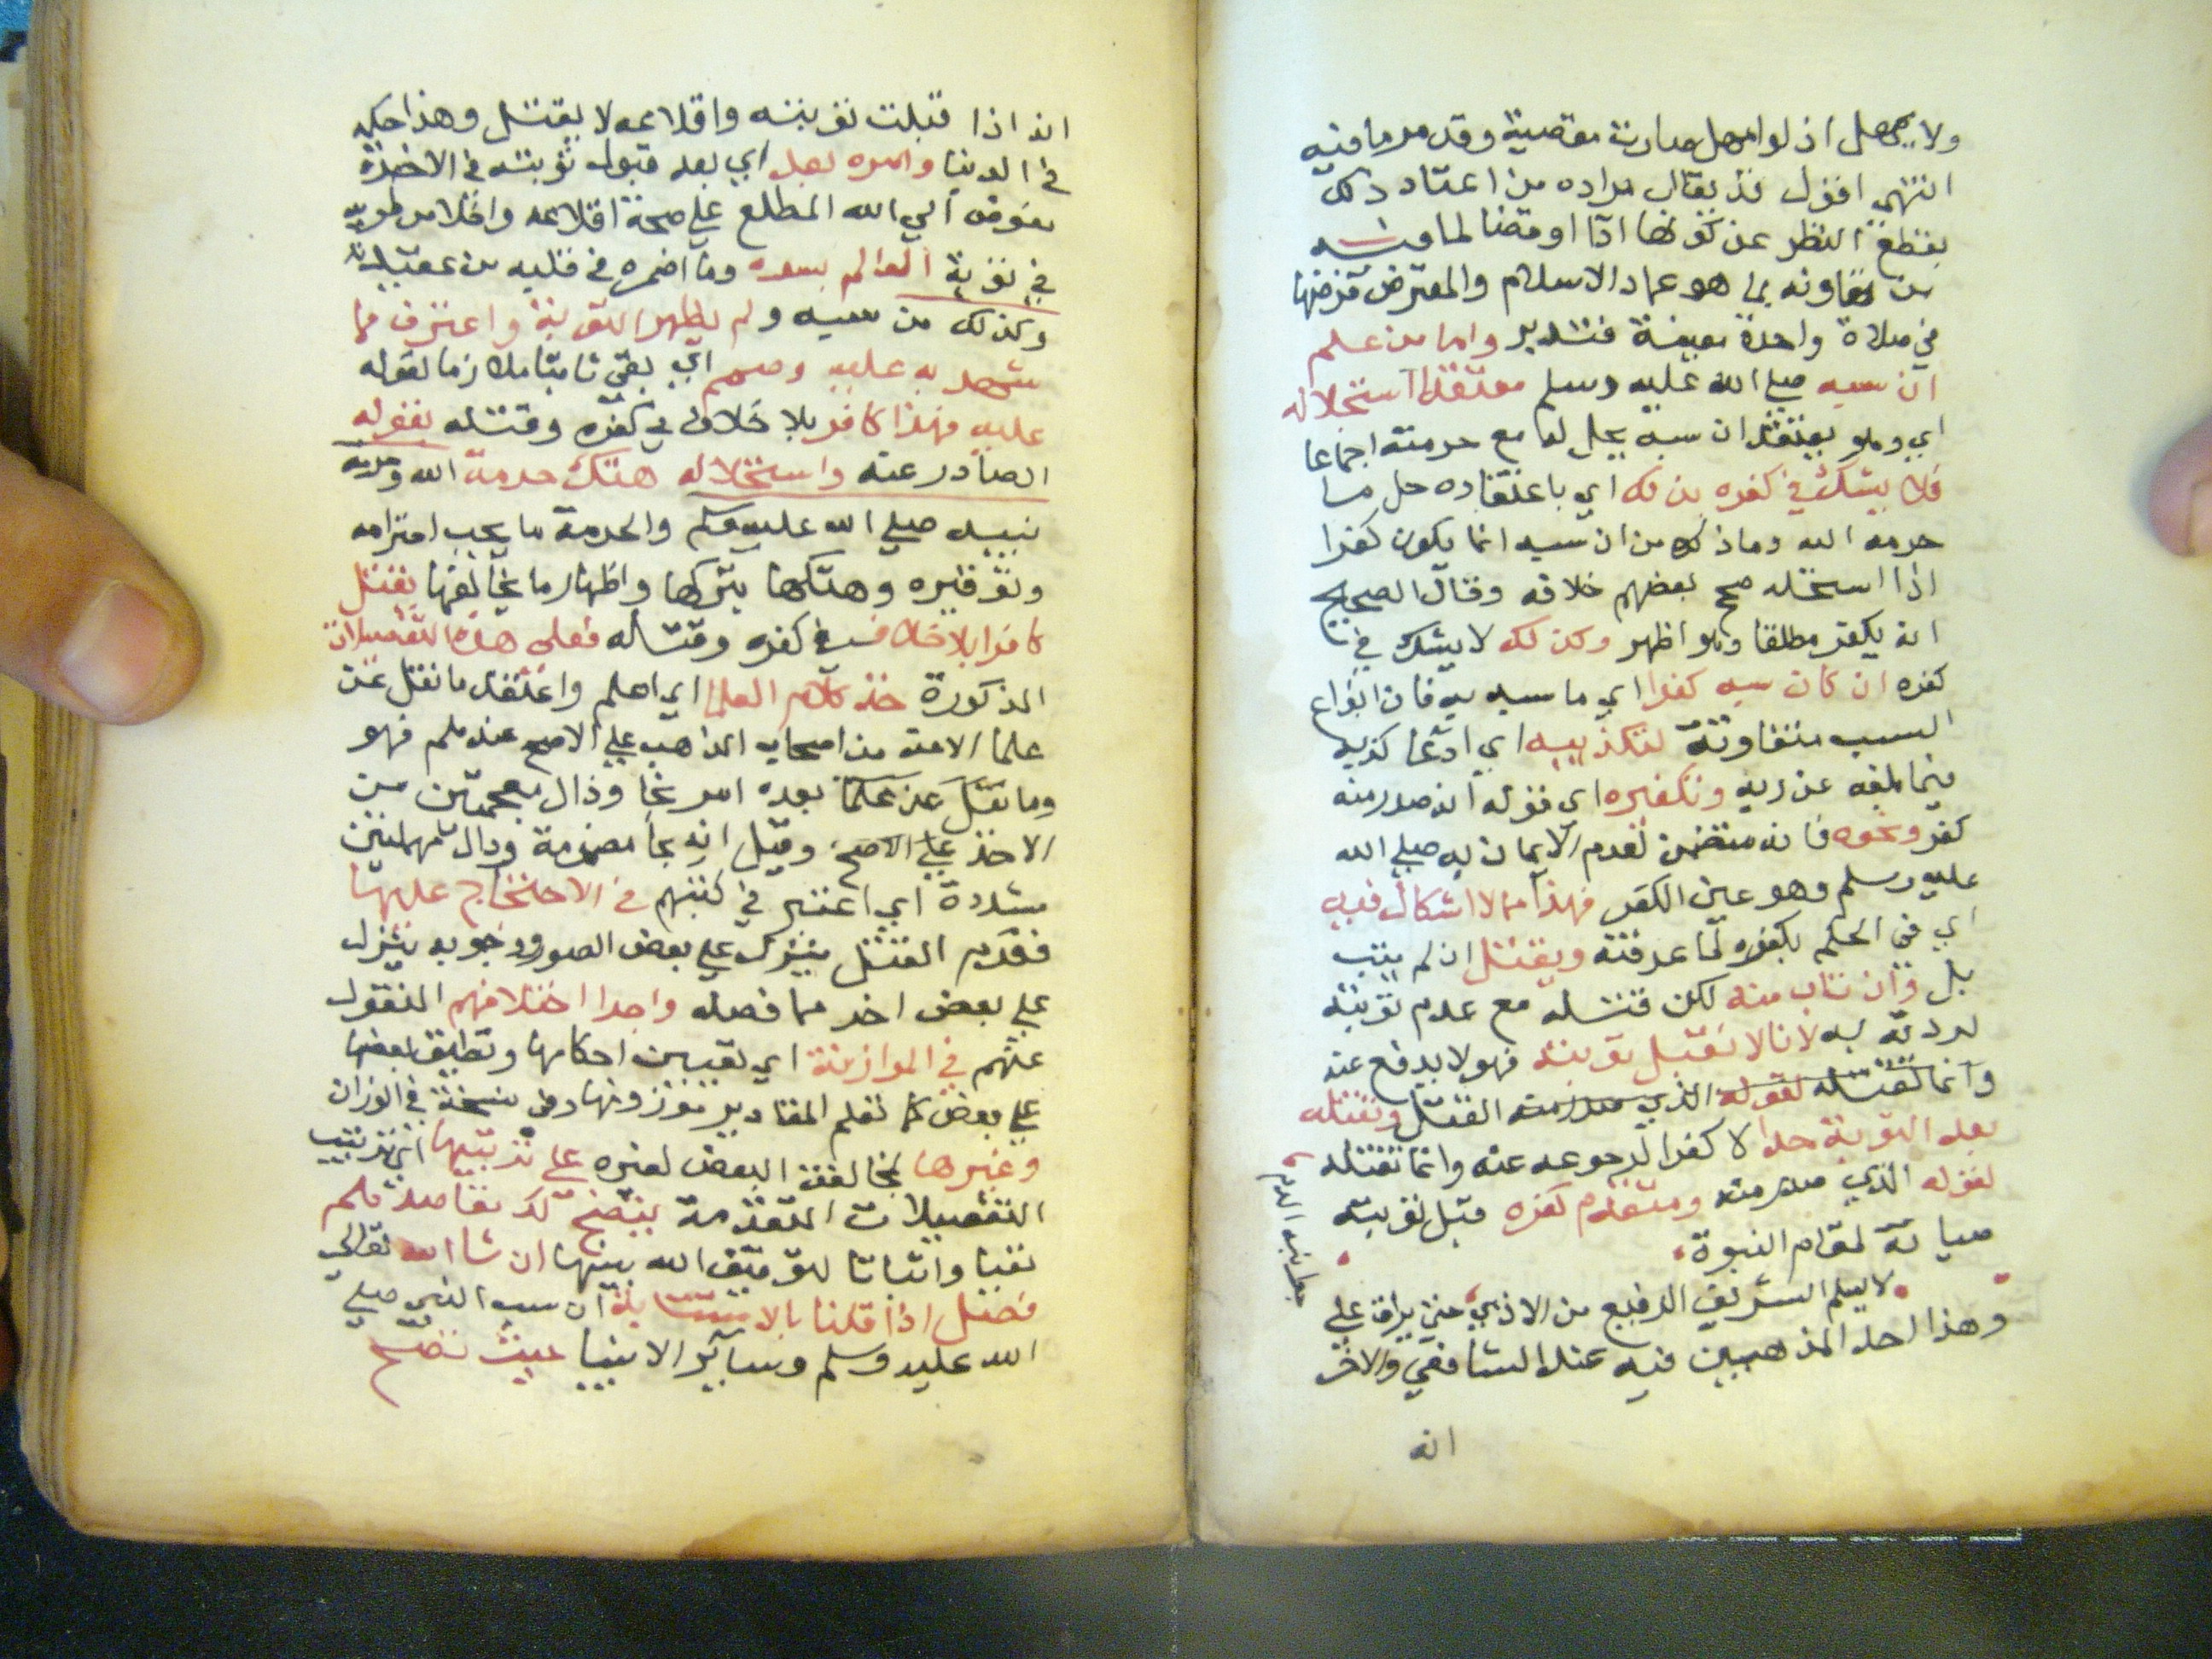 ولا يمهل اذ لو امهل صارت مقضية وقد مر ما فيه
انتهى اقول قد يقال مراده من اعتاد ذلك
بقطع النظر عن كونها ادا او قضا لما فيه
من تهاونه بما هو عماد الاسلام والمعترض فرضها
في صلاة واحدة معينة فتدبر واما من علم
ان سبه صلى الله عليه وسلم معتقدا استحلاله
اي وهو يعتقد ان سبه يحل له مع حرمته اجماعا
فلا يشك في كفره بذلك اي باعتقاده حل ما
حرمه الله وما ذكره من ان سبه انما يكون كفرا
اذا استحله صح بعضهم خلافه وقال الصحيح
انه يكفر مطلقا وهو اظهر وكذلك لا يشك في
كفره ان كان سبه كفرا اي ما سبه به فان انواع
السب متفاوتة لتكذيبه اي ادعا كذبه
فيما بلغه عن ربه وتكفيره اي قوله انه صدر منه
كفر ونحوه فانه متضمن لعدم الايمان به صلى الله
عليه وسلم وهو عين الكفر فهذا مما لا اشكال فيه
اي في الحكم بكفره لما عرفته ويقتل ان لم يتب
بل وان تاب منه لكن قتله مع عدم توبته
لردته به لانا لا نقبل توبته فهو لا يدفع عنه
وانما نقتله لقوله الذي صدر منه القتل ونقتله
بعد التوبة حدا لا كفرا لرجوعه عنه وانما نقتله
لقوله الذي صدر منه ومتقدم كفره قبل توبته
صيانة لمقام النبوة
لا يسلم الشريف الرفيع من الاذى حتى يراق على
جوانبه الدم
وهذا احد المذهبين فيه عند الشافعي والاخر
انه
انه اذا قبلت توبته واقلاعه لا يقتل وهذا حكمه
في الدنيا وامره بعد اي بعد قبول توبته في الاخرة
مفوض الى الله المطلع على صحة اقلاعه واخلاص طويته
في توبة العالم بسره وما اضمره في قلبه من عقيدته
وكذلك من سبه ولم يظهر التوبة واعترف بما
شهد به عليه وصمم اي بقي ثابتا ملازما لقوله
عليه فهذا كافر بلا خلاف في كفره وقتله بقوله
الصادر عنه واستحلاله هتك حرمة الله وحرمة
نبيه صلى الله عليه وسلم والحرمة ما يجب احترامه
وتوقيره وهتكها بتركها واظهار ما يخالفها يقتل
كافرا بلا خلاف في كفره وقتله فعلى هذه التفصيلات
المذكورة خذ كلام العلما اي اعلم واعتقد ما نقل عن
علما الامة من اصحاب المذاهب على الاصح عندهم فهو
وما نقل عن عكما بعده امر بخا وذال معجمتين من
الاخذ على الاصح وقيل انه بحا مضمومة ودال مهملتين
مشددة اي اعتبر في كتبهم في الاحتجاج عليها
فقدم القتل ينزل على بعض الصور ووجوبه ينزل
على بعض اخر مما فصله واجرا اختلافهم المنقول
عنهم في الموازنة اي تعيين احكامها وتطبيق بعضها
على بعض كما تعلم المقادير بموزونها وفي نسخة في الوزان
وغيرها لمخالفة البعض لغيره على ترتيبها اي ترتيب
التفصيلات المتقدمة يتضح لك مقاصدهم
نفيا واثباتا للتوفيق الله بينها ان شا الله تعالى
فصل اذا قلنا بالاستتابة ان سب النبي صلى
الله عليه وسلم وساير الانبيا حيث تصح